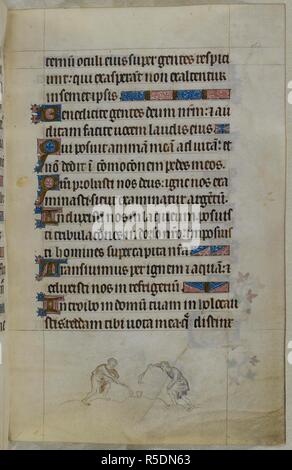 ternū oculi eius super gentes respici
unt: qui exasperāt non exaltentur
in semetipsis
Benedicite gentes deum nrm̄: ⁊ au
ditam facite uocem laudis eius
Qui posuit animam meā ad uitam: et
nō dedit ī cōmocōem pedes meos.
Qm̄ probasti nos deus: igne nos exa
minasti sicut examinatur argētū.
Induxisti nos in laqueum posuisti
tribulacōnes in dorso nrō: imposuis
ti homines super capita nrā
Transiuimus per ignem ⁊ aquā: ⁊
eduxisti nos in refrigeriū
Introibo in domū tuam in holocau
stis: reddam tibi uota mea q̄ distinx
alamy
R5DN63